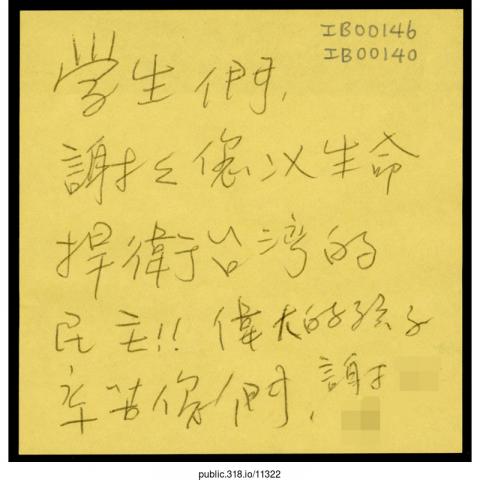 IB00146
IB00140
學生們,
謝謝您以生命
捍衛台湾的
民主!! 偉大的孩子
辛苦你們, 謝
public.318.io/11322